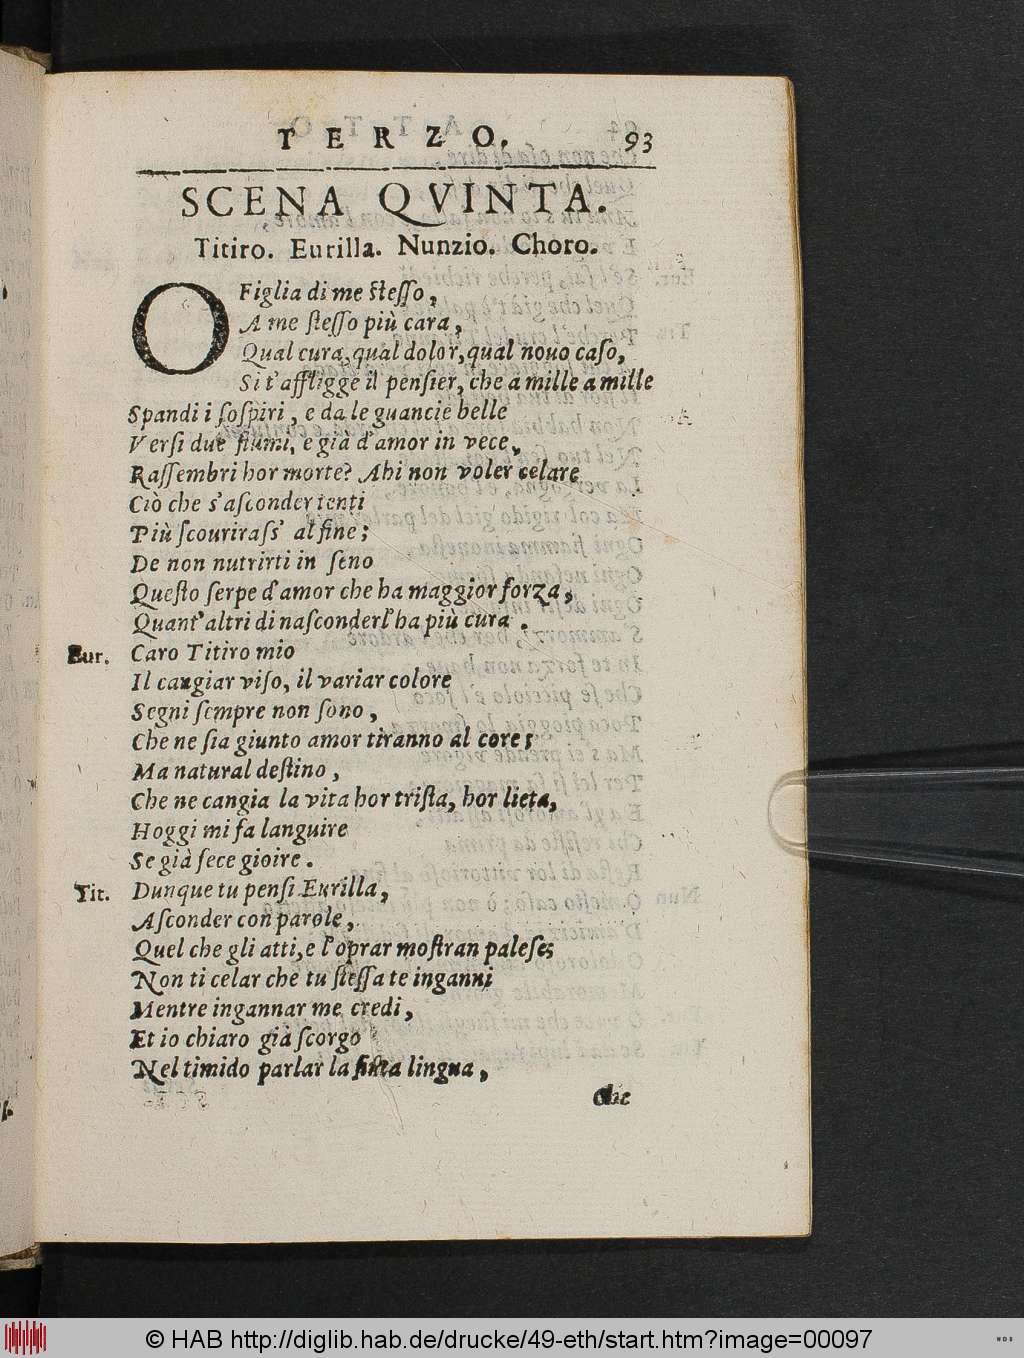 TERZO. 93
SCENA QVINTA.
Titiro. Eurilla. Nunzio. Choro.
O Figlia di me ſteſſo,
A me ſteſſo più cara,
Qual cura, qual dolor, qual nouo caſo,
Si t'affligge il penſier, che a mille a mille
Spandi i ſoſpiri, e da le guancie belle
Verſi due fiumi, e già d'amor in vece,
Raſſembri hor morte? Ahi non voler celare
Ciò che s'aſconder tenti
Più ſcouriraſſ' al fine;
De non nutrirti in ſeno
Queſto ſerpe d'amor che ha maggior forza,
Quant'altri di naſconderl'ha più cura.
Eur. Caro Titiro mio
Il cangiar viſo, il variar colore
Segni ſempre non ſono,
Che ne ſia giunto amor tiranno al core;
Ma natural deſtino,
Che ne cangia la vita hor triſta, hor lieta,
Hoggi mi fa languire
Se già fece gioire.
Tit. Dunque tu penſi Eurilla,
Aſconder con parole,
Quel che gli atti, e l'oprar moſtran paleſe;
Non ti celar che tu ſteſſa te inganni
Mentre ingannar me credi,
Et io chiaro già ſcorgo
Nel timido parlar la finta lingua,
Che
© HAB http://diglib.hab.de/drucke/49-eth/start.htm?image=00097